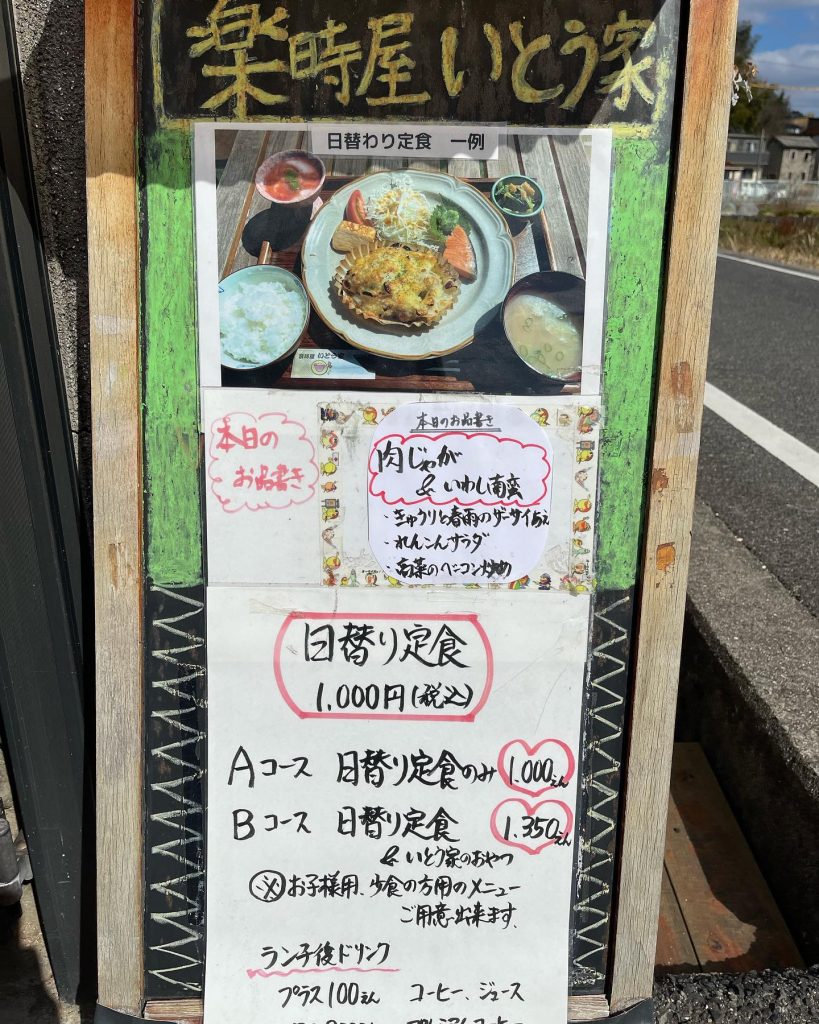 楽時屋 いとう家
日替わり定食 一例
本日の
お品書き
本日のお品書き
肉じゃが
& いわし南蛮
・きゅうりと春雨のザーサイ和え
・れんこんサラダ
・白菜のベーコン炒め
日替り定食
1,000円(税込)
Aコース 日替り定食のみ 1.000えん
Bコース 日替り定食 1.350えん
& いとう家のおやつ
※ お子様用、少食の方用のメニュー
ご用意出来ます。
ランチ後ドリンク
プラス100えん コーヒー、ジュース